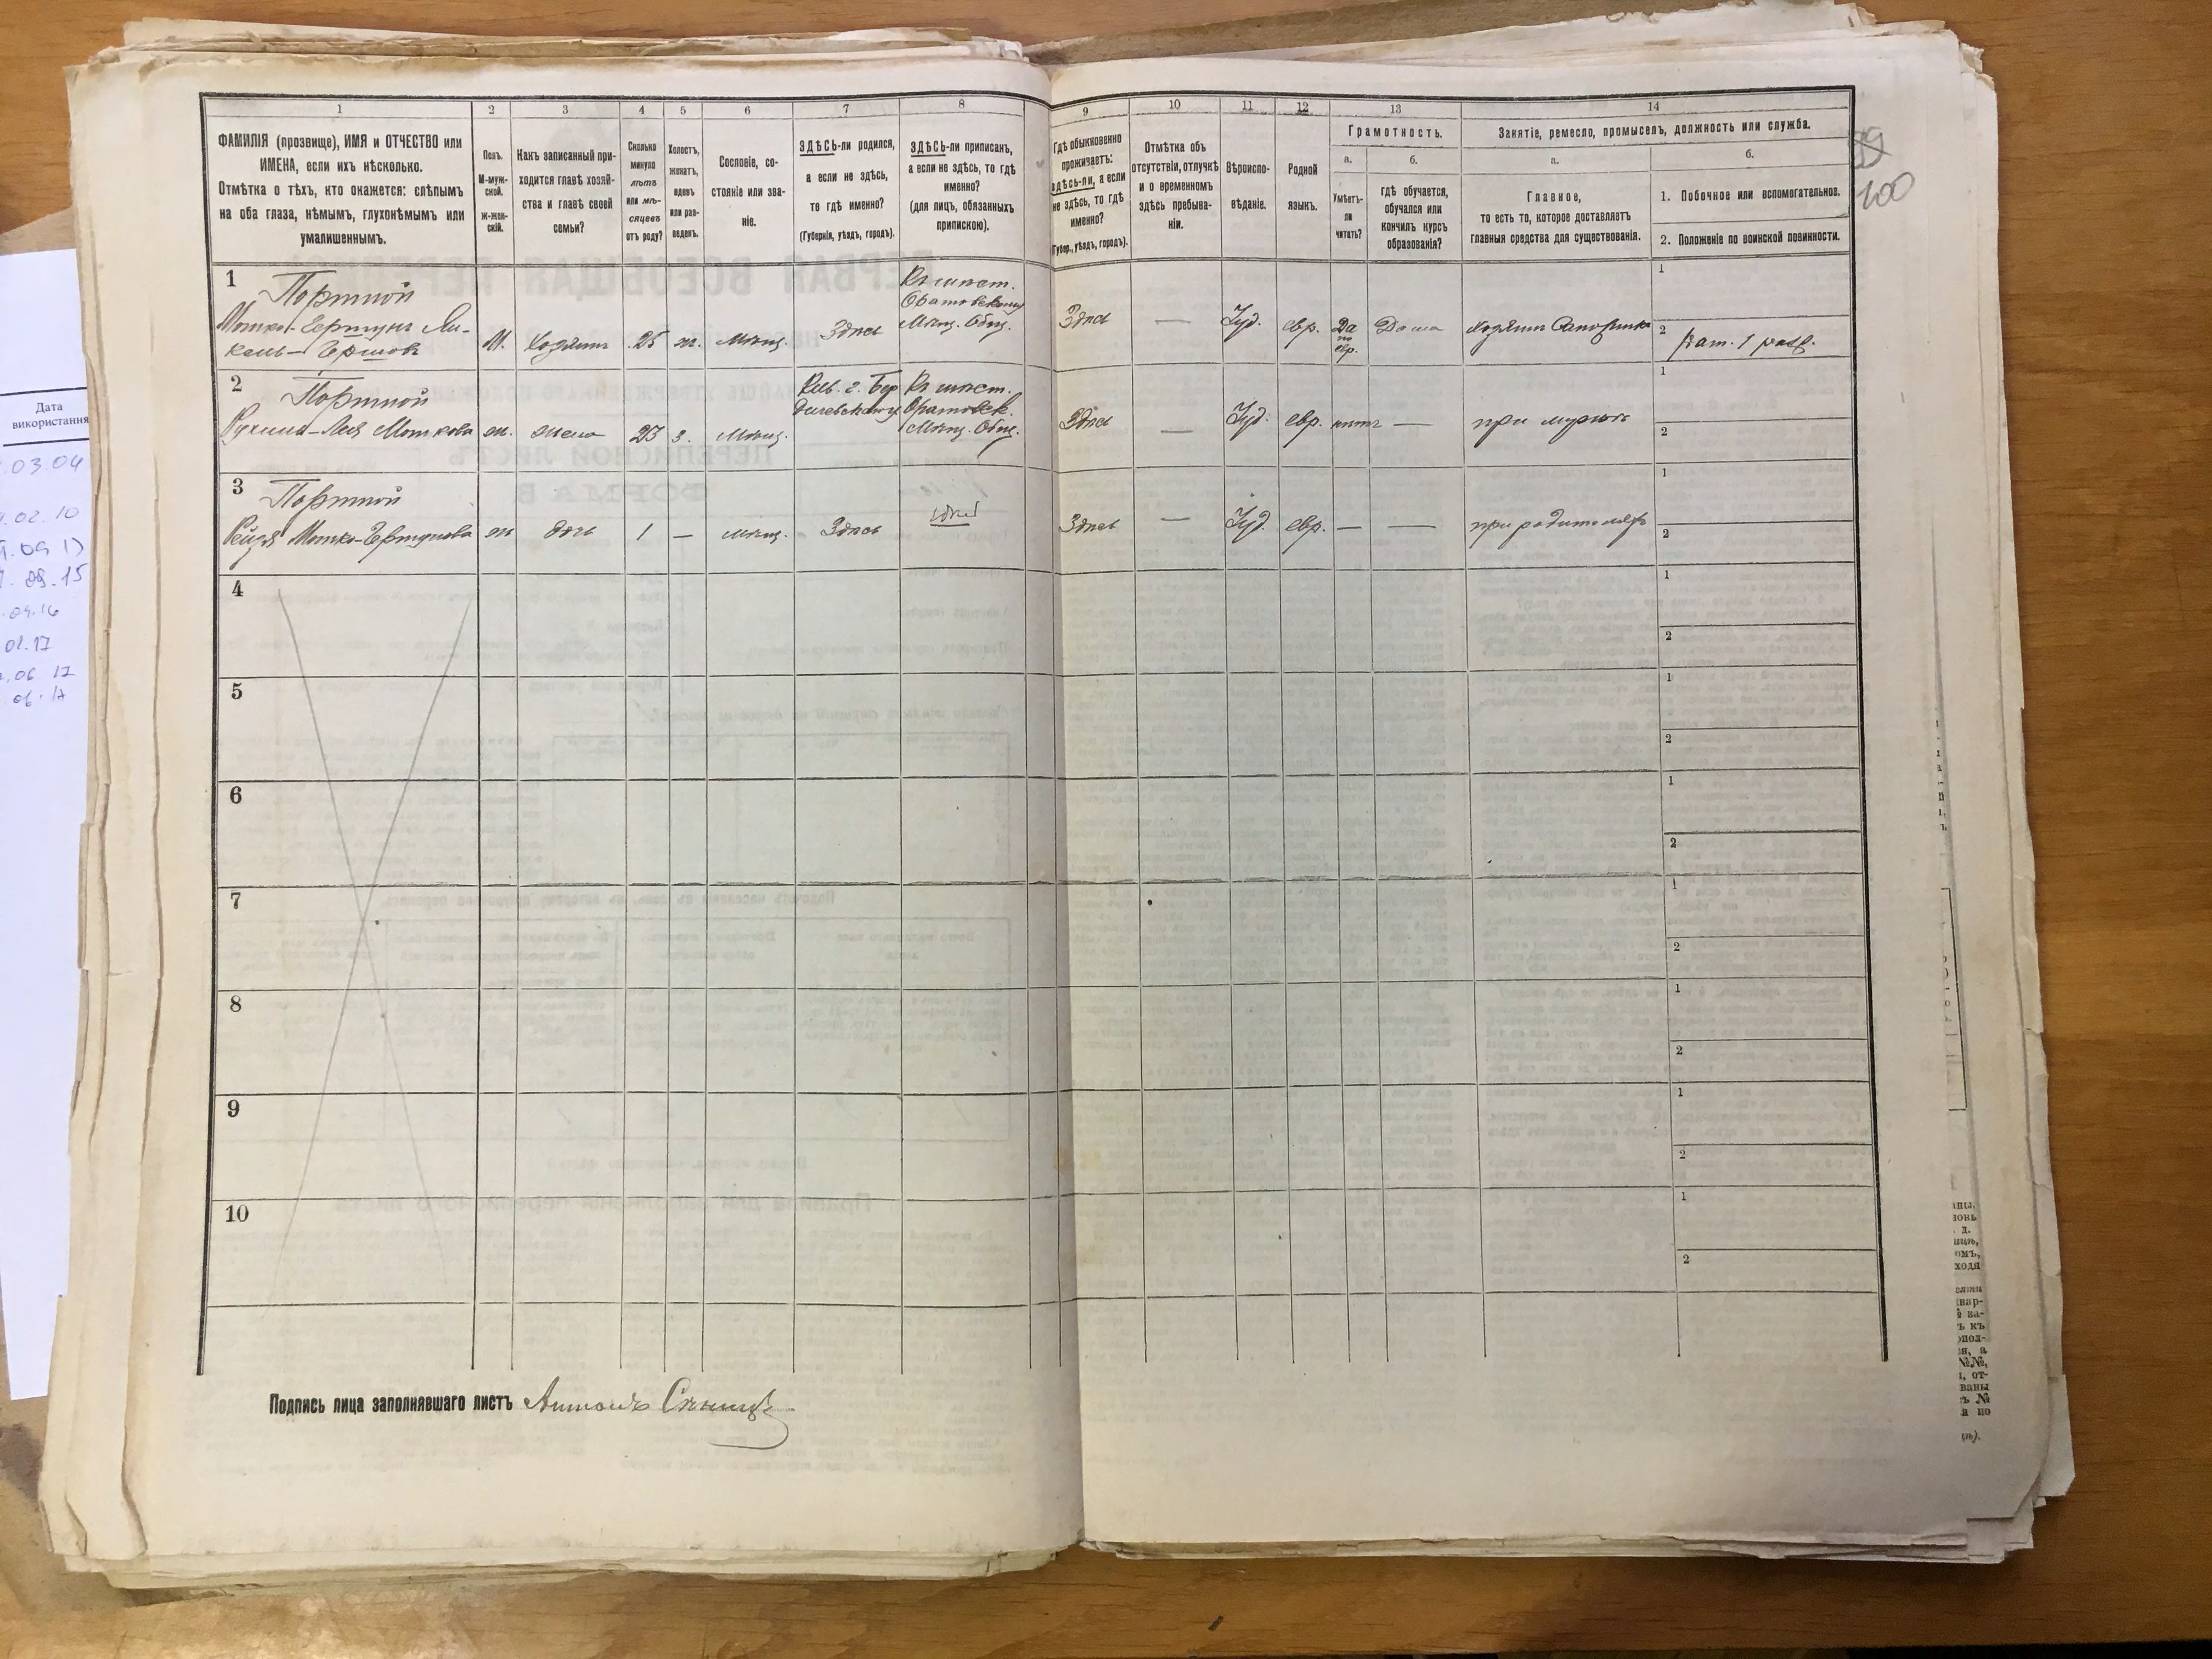 1 2 3 4 5 6 7 8 9 10 11 12 13 14
ФАМИЛІЯ (прозвище), ИМЯ и ОТЧЕСТВО или
ИМЕНА, если ихъ нѣсколько.
Отмѣтка о тѣхъ, кто окажется: слѣпымъ
на оба глаза, нѣмымъ, глухонѣмымъ или
умалишеннымъ.
Полъ.
М-муж-
ской.
Ж-жен-
скій.
Какъ записанный при-
ходится главѣ хозяй-
ства и главѣ своей
семьи?
Сколько
минуло
лѣтъ
или мѣ-
сяцевъ
отъ роду?
Холостъ,
женатъ,
вдовъ
или раз-
веденъ.
Сословіе, со-
стояніе или зва-
ніе.
ЗДѢСЬ-ли родился,
а если не здѣсь,
то гдѣ именно?
(Губернія, уѣздъ, городъ).
ЗДѢСЬ-ли приписанъ,
а если не здѣсь, то гдѣ
именно?
(для лицъ, обязанныхъ
припискою).
Гдѣ обыкновенно
проживаетъ:
здѣсь-ли, а если
не здѣсь, то гдѣ
именно?
(Губер., уѣздъ, городъ).
Отмѣтка объ
отсутствіи, отлучкѣ
и о временномъ
здѣсь пребыва-
ніи.
Вѣроиспо-
вѣданіе.
Родной
языкъ.
Грамотность.
а.
Умѣетъ-
ли
читать?
б.
гдѣ обучается,
обучался или
кончилъ курсъ
образованія?
Занятіе, ремесло, промыселъ, должность или служба.
а.
Главное,
то есть то, которое доставляетъ
главныя средства для существованія.
б.
1. Побочное или вспомогательное.
2. Положеніе по воинской повинности.
100
1
Портной
Мошко-Гершунъ
М. Хозяинъ 25 ж. Мѣщ. Здѣсь
Мѣщ. Общ.
Здѣсь — Іуд. евр. Да
по
евр.
Дома
1
2
2
Портной
Лея Мошкова
ж. жена 23 з. Мѣщ.
Мѣщ. Общ.
Здѣсь — Іуд. евр. нѣтъ — при мужѣ
1
2
3
Портной
Рейзя Мошко-Гершунова
ж дочь 1 — мѣщ. Здѣсь здѣсь
Здѣсь — Іуд. евр. — — при родителяхъ
1
2
4
1
2
5
1
2
6
1
2
7
1
2
8
1
2
9
1
2
10
1
2
Подпись лица заполнявшаго листъ Антонъ
Дата
використання
03.04
02.10
09.15
04.16
01.17
06 17
06.17